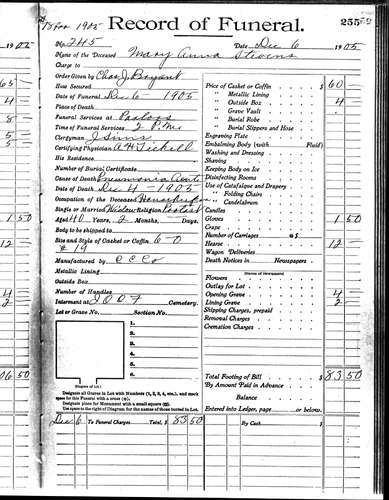 18 Nov 1905
Record of Funeral.
255
No. 245 Date Dec 6 1905
Name of the Deceased Mary Anna Stevens
Charge to
Order Given by Chas J. Bryant
How Secured
Date of Funeral Dec 6 1905
Place of Death
Funeral Services at Parlors
Time of Funeral Services 2 P.M.
Clergyman J Sims
Certifying Physician A H Tickell
His Residence
Number of Burial Certificate
Cause of Death Pneumonia Acute
Date of Death Dec 4 1905
Occupation of the Deceased Housekeeper
Single or Married Widow Religion Protest
Aged 40 Years, 2 Months, Days
Body to be shipped to
Size and Style of Casket or Coffin 6 0
# 19
Manufactured by C C Co
Metallic Lining
Outside Box
Number of Handles
Interment at I O O F Cemetery.
Lot or Grave No. Section No.
1.
2.
3.
4.
5.
6.
(Diagram of Lot.)
Designate all Graves in Lot with Numbers (1, 2, 3, 4, etc.), and mark
space for this Funeral with a cross (+).
Designate place for Monument with a small square (□).
Use space to right of Diagram for the names of those buried in Lot.
Dec 6 To Funeral Charges Total, $ 83 50
Price of Casket or Coffin $ 60
" Metallic Lining
" Outside Box 4
" Grave Vault
" Burial Robe
" Burial Slippers and Hose
Engraving Plate
Embalming Body (with Fluid)
Washing and Dressing
Shaving
Keeping Body on Ice
Disinfecting Rooms
Use of Catafalque and Drapery
" Folding Chairs
" Candelabrum
Candles
Gloves 1 50
Crape
Number of Carriages @ $
Hearse 12
Wagon Deliveries
Death Notices in Newspapers
(Names of Newspapers)
Flowers
Outlay for Lot
Opening Grave 4
Lining Grave 2
Shipping Charges, prepaid
Removal Charges
Cremation Charges
Total Footing of Bill $ 83 50
By Amount Paid in Advance
Balance
Entered into Ledger, page or below.
By Cash $